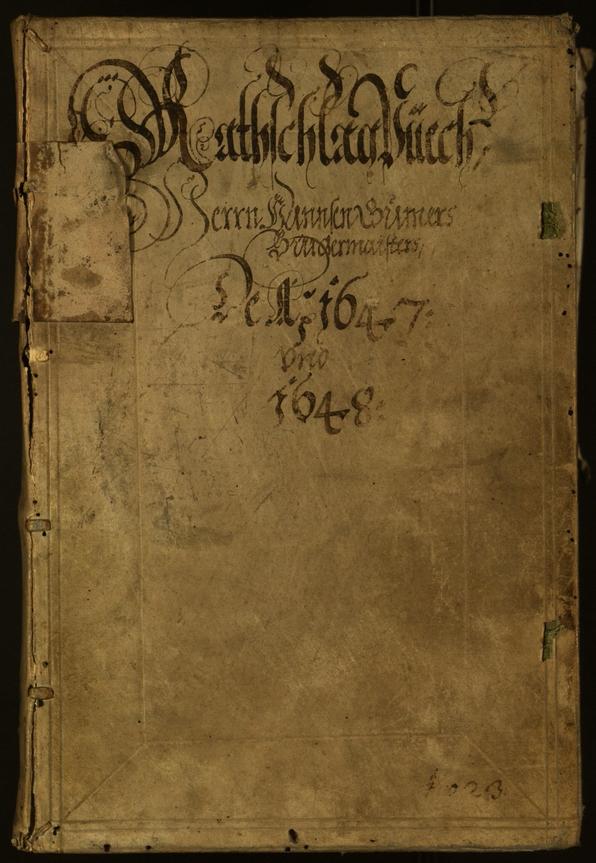 Rathschlag Püech,
Herrn Hannsen Gumers
Burgermaisters,
De Aº: 1647:
vnd
1648:
1023